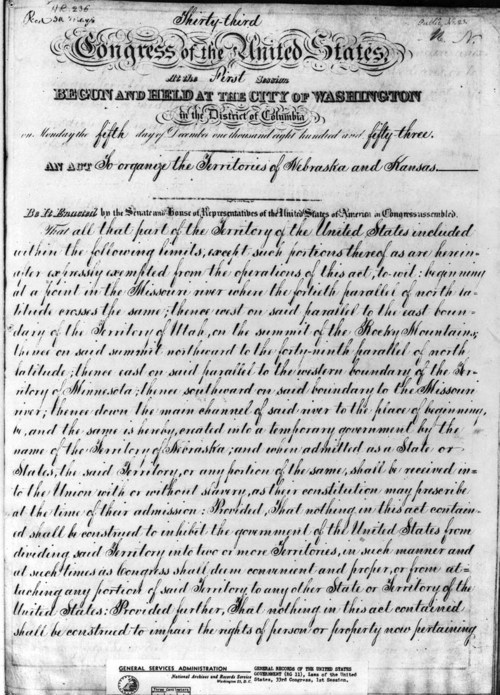 H R 236
Thirty-third
Congress of the United States,
At the First Session
BEGUN AND HELD AT THE CITY OF WASHINGTON
in the District of Columbia
on Monday the fifth day of December one thousand eight hundred and fifty-three.
AN ACT To organize the Territories of Nebraska and Kansas.
Be It Enacted by the Senate and House of Representatives of the United States of America in Congress assembled.
That all that part of the Territory of the United States included
within the following limits, except such portions thereof as are herein-
after expressly exempted from the operations of this act, to wit: beginning
at a point in the Missouri river where the fortieth parallel of north la-
titude crosses the same; thence west on said parallel to the east boun-
dary of the Territory of Utah, on the summit of the Rocky Mountains;
thence on said summit northward to the forty-ninth parallel of north
latitude; thence east on said parallel to the western boundary of the Ter-
ritory of Minnesota; thence southward on said boundary to the Missouri
river; thence down the main channel of said river to the place of beginning,
be, and the same is hereby, created into a temporary government by the
name of the Territory of Nebraska; and when admitted as a State or
States, the said Territory, or any portion of the same, shall be received in-
to the Union with or without slavery, as their constitution may prescribe
at the time of their admission: Provided, That nothing in this act contain-
ed shall be construed to inhibit the government of the United States from
dividing said Territory into two or more Territories, in such manner and
at such times as Congress shall deem convenient and proper, or from at-
taching any portion of said Territory to any other State or Territory of the
United States: Provided further, That nothing in this act contained
shall be construed to impair the rights of person or property now pertaining
GENERAL SERVICES ADMINISTRATION
National Archives and Records Service
Washington 25, D.C.
GENERAL RECORDS OF THE UNITED STATES
GOVERNMENT (RG 11), Laws of the United
States, 33rd Congress, 1st Session.